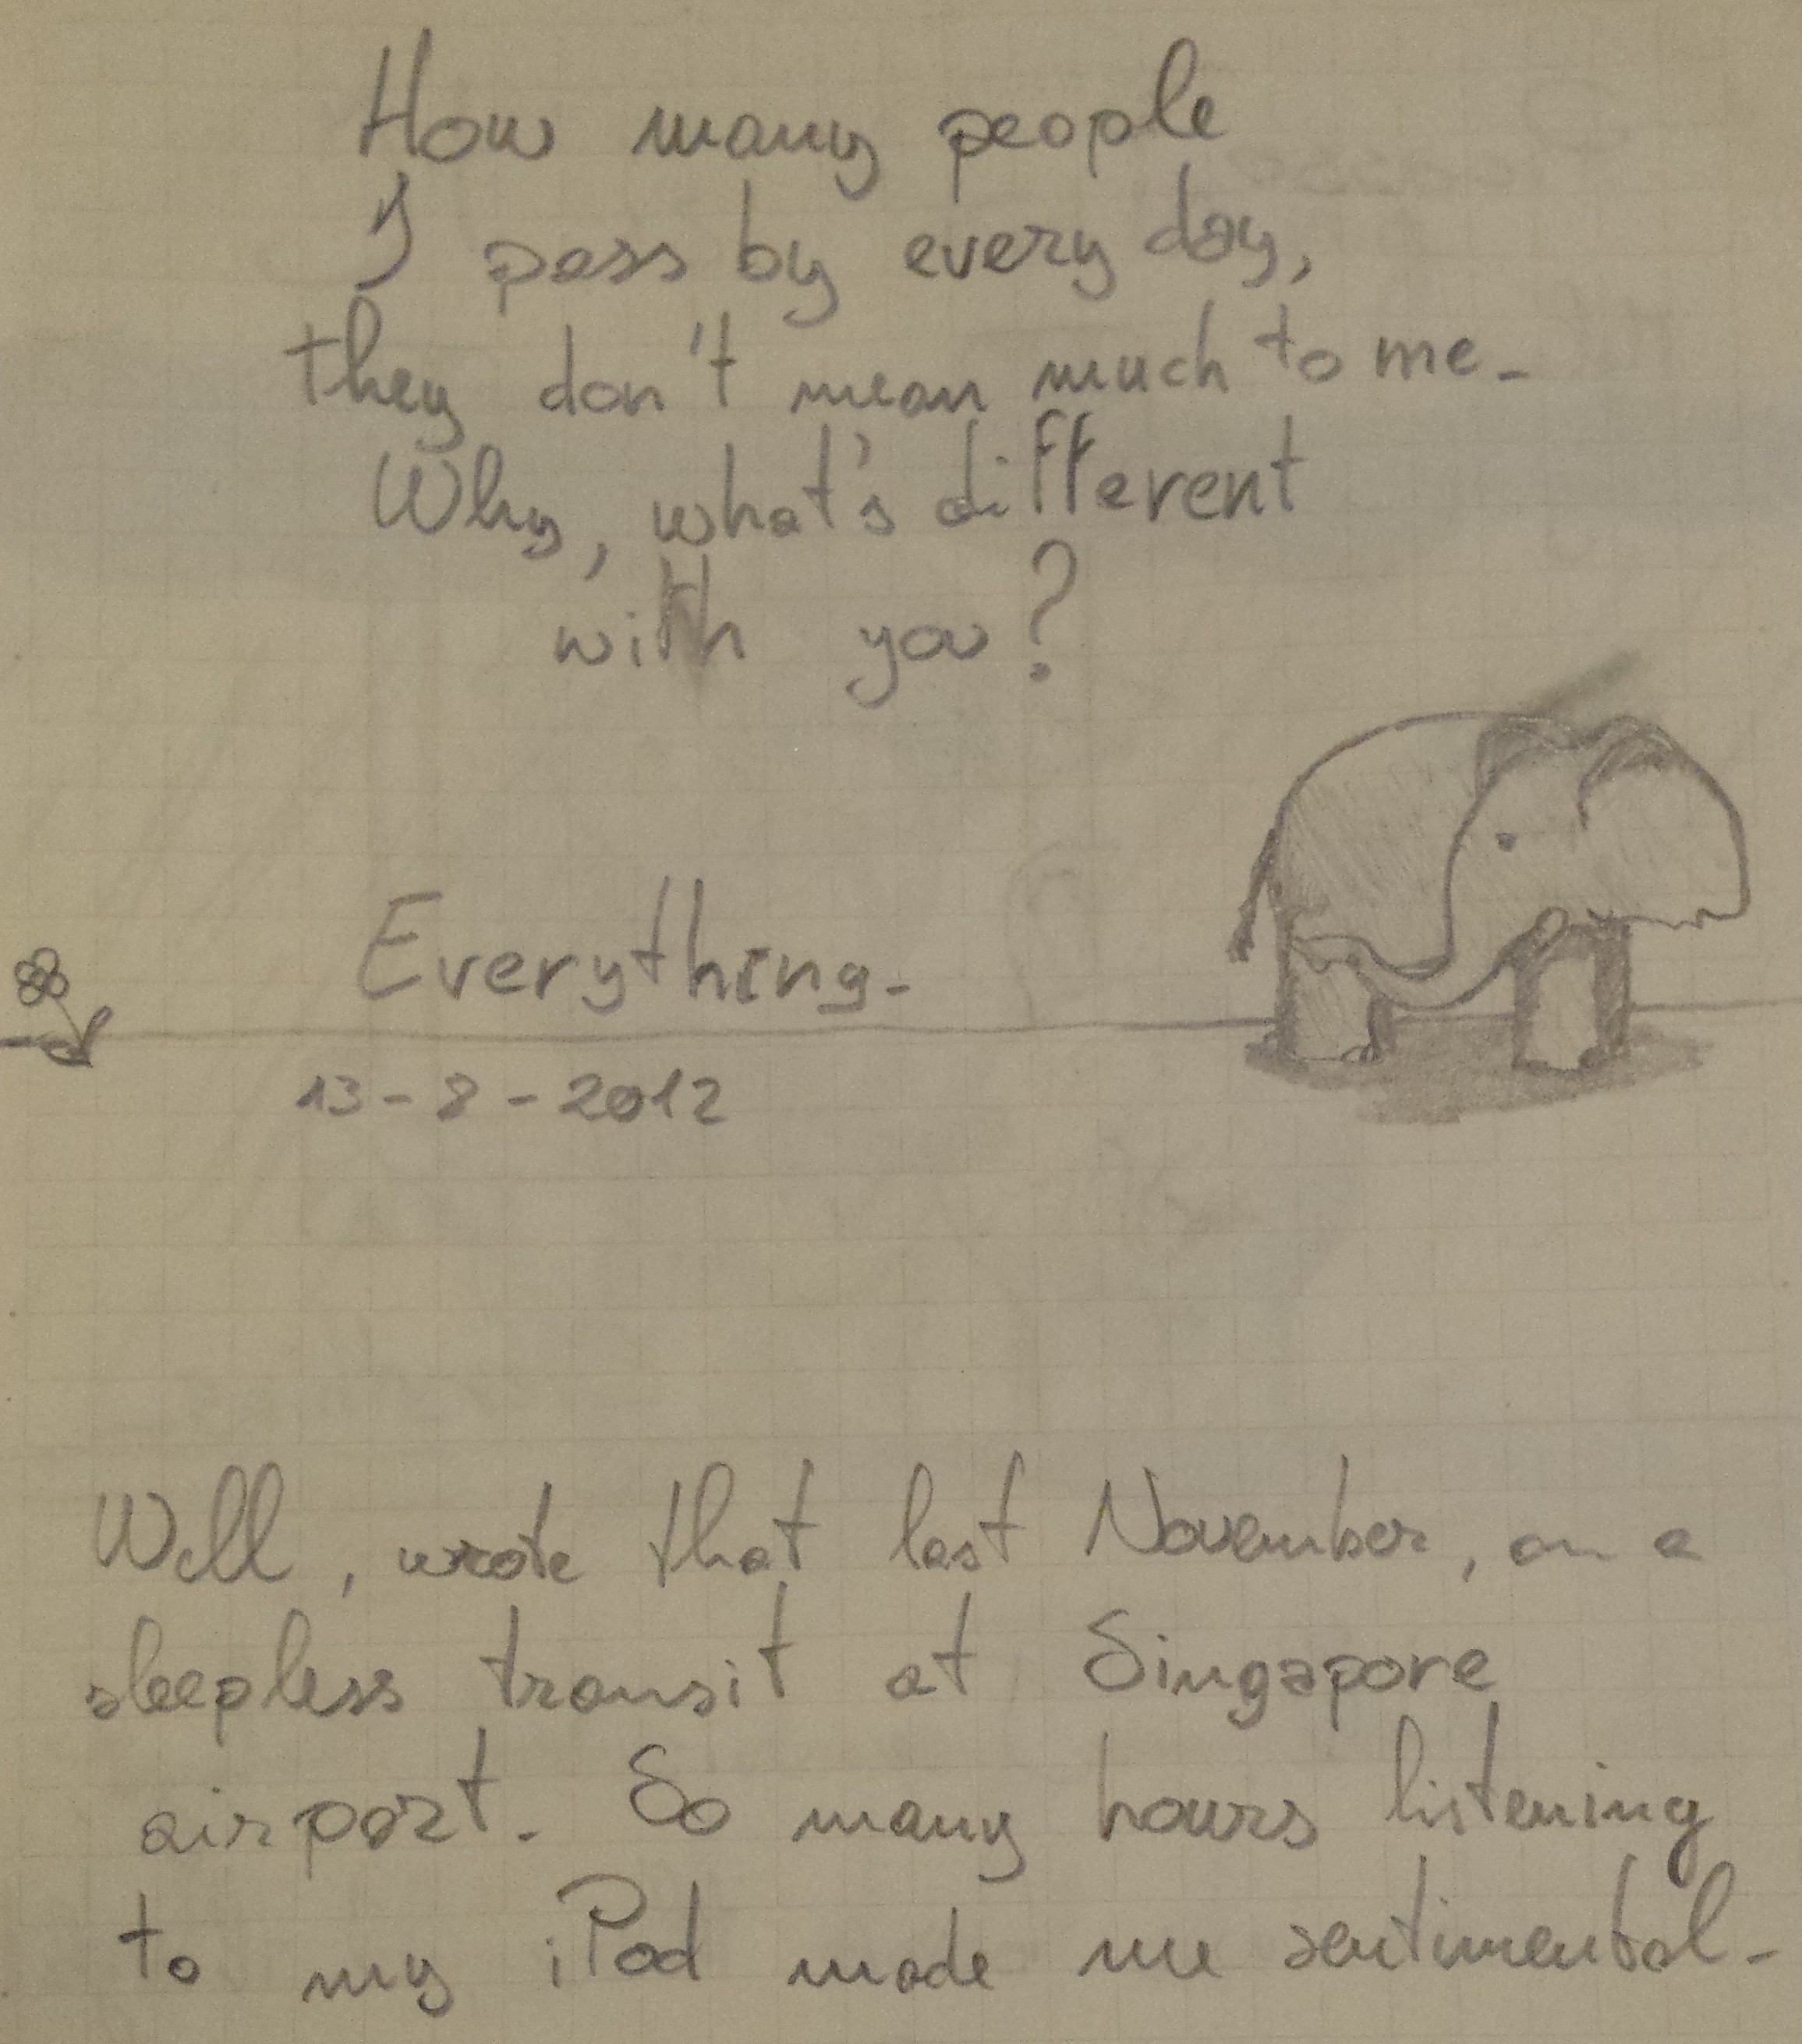 How many people
I pass by every day,
they don't mean much to me-
Why, what's different
with you?
Everything-
13-8-2012
Well, wrote that last November, on a
sleepless transit at Singapore
airport. So many hours listening
to my iPod made me sentimental-